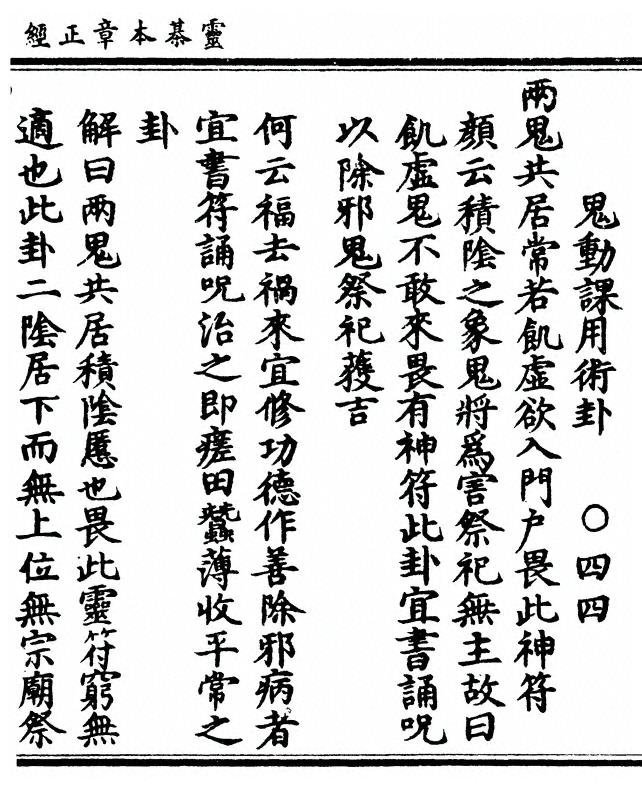 靈棊本章正經
鬼動課用術卦　〇四四
兩鬼共居常若飢虛欲入門户畏此神符
顏云積陰之象鬼將為害祭祀無主故曰
飢虛鬼不敢來畏有神符此卦宜書誦呪
以除邪鬼祭祀獲吉
何云福去禍來宜修功德作善除邪病者
宜書符誦呪治之即瘥田蠶薄收平常之
卦
解曰兩鬼共居積陰慝也畏此靈符窮無
適也此卦二陰居下而無上位無宗廟祭